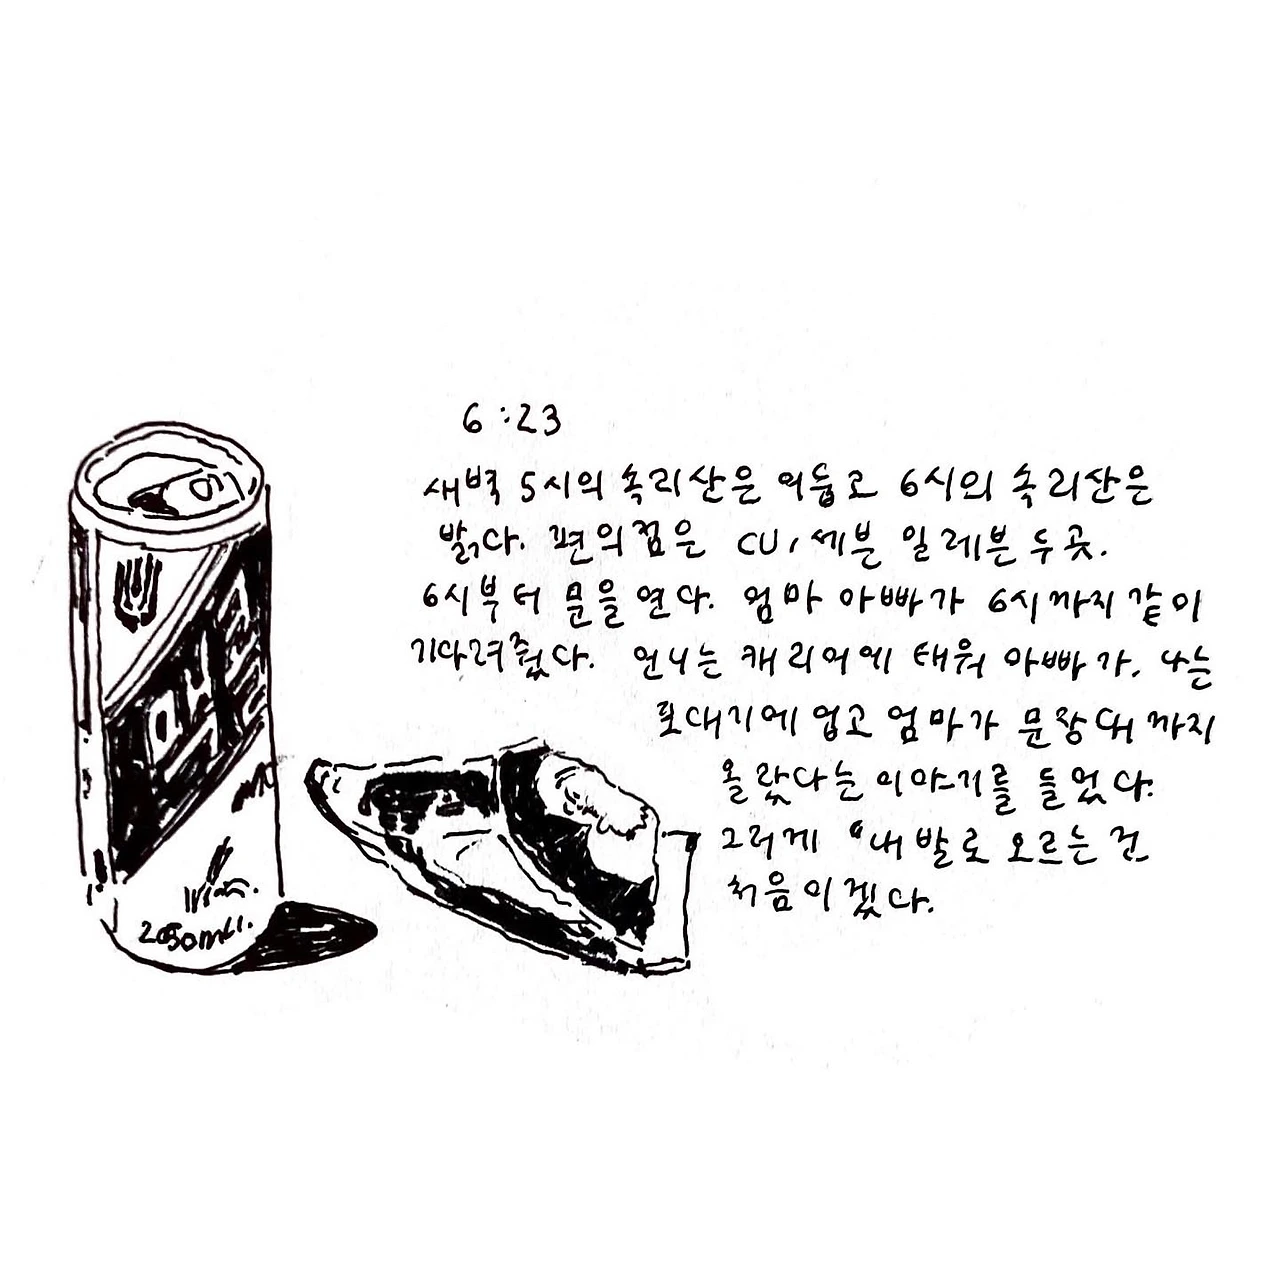 6:23
새벽 5시의 속리산은 어둡고 6시의 속리산은
밝다. 편의점은 CU, 세븐 일레븐 두 곳.
6시부터 문을 연다. 엄마 아빠가 6시까지 같이
기다려줬다. 언니는 캐리어에 태워 아빠가, 나는
포대기에 업고 엄마가 문장대까지
올랐다는 이야기를 들었다.
그러게 "내 발로 오르는 건
처음이겠다.